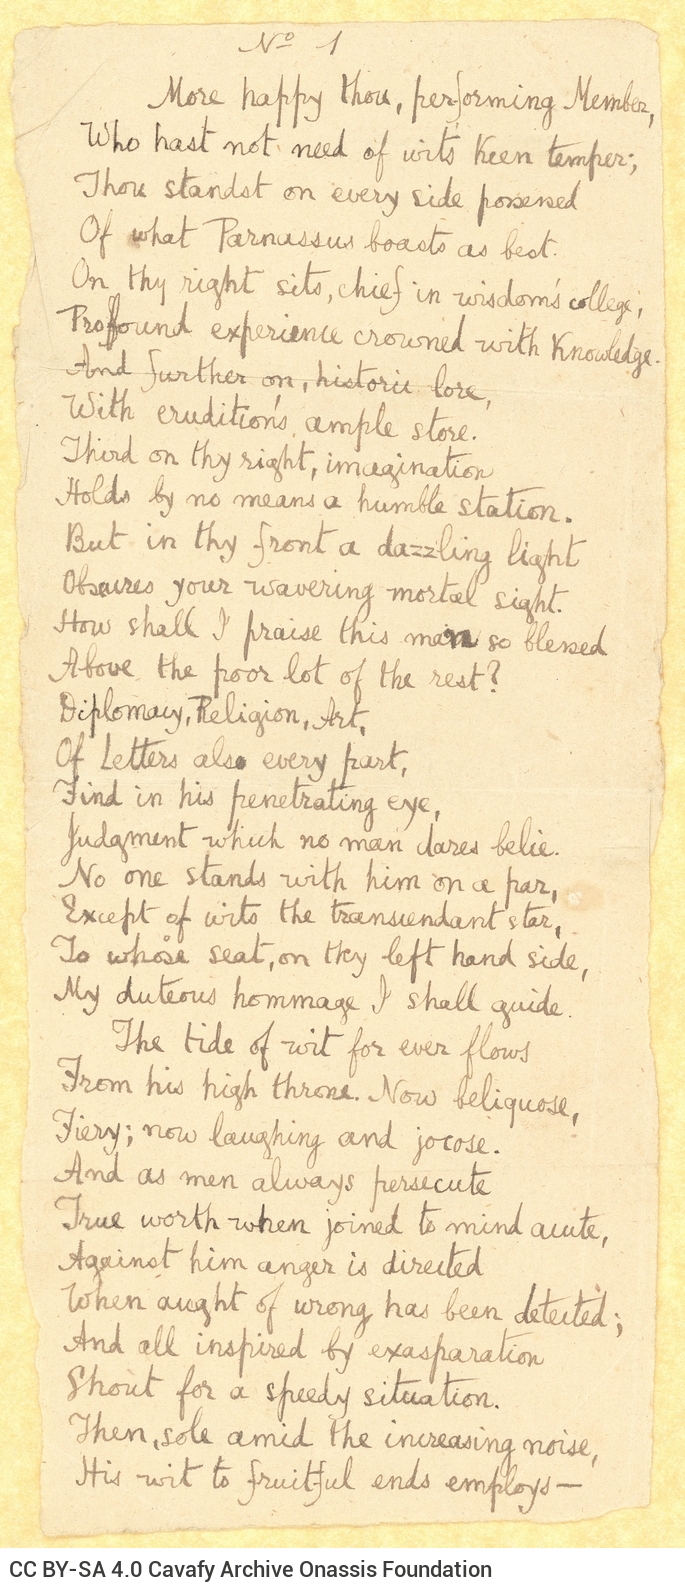 No 1
More happy thou, performing Member,
Who hast not need of wits keen temper;
Thou standst on every side possessed
Of what Parnassus boasts as best.
On thy right sits, chief in wisdom's college,
Proffound experience crowned with knowledge.
And further on, historic lore,
With erudition's ample store.
Third on thy right, imagination
Holds by no means a humble station.
But in thy front a dazzling light
Obscures your wavering mortal sight.
How shall I praise this man so blessed
Above the poor lot of the rest?
Diplomacy, Religion, Art,
Of Letters also every part,
Find in his penetrating eye,
Judgment which no man dares belie.
No one stands with him on a par,
Except of wits the transcendant star,
To whose seat, on thy left hand side,
My duteous hommage I shall guide.
The tide of wit for ever flows
From his high throne. Now beliquose,
Fiery; now laughing and jocose.
And as men always persecute
True worth when joined to mind acute,
Against him anger is directed
When aught of wrong has been detected;
And all inspired by exasparation
Shout for a speedy situation.
Then, sole amid the increasing noise,
His wit to fruitful ends employs—
CC BY-SA 4.0 Cavafy Archive Onassis Foundation